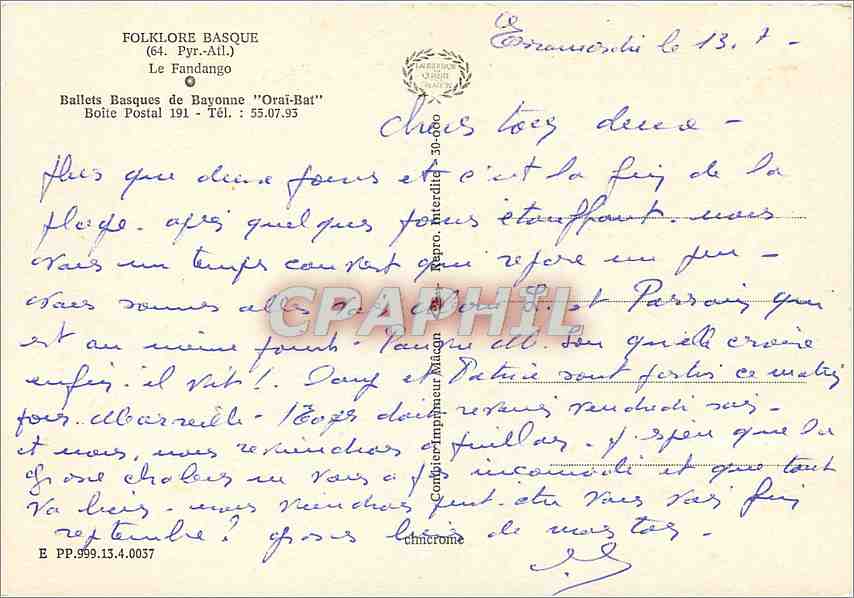 FOLKLORE BASQUE
(64. Pyr.-Atl.)
Le Fandango
Ballets Basques de Bayonne "Oraï-Bat"
Boîte Postal 191 - Tél. : 55.07.93
ce
le 13.7 -
Chers tous deux -
Plus que deux jours et c'est la fin de la
plage. après quelques jours étouffant. nous
avons un temps couvert qui repose un peu -
nous sommes allés et
est au même point. qu'elle croire
enfin. il vit ! Dany et Patrice sont partis ce matin
pour Marseille - doit revenir vendredi soir -
et nous, nous reviendrons juillet. j'espère que la
grosse chaleur ne vous a pas incommodé et que tout
va bien. nous viendrons peut-être vous voir fin
septembre ? grosses bises de nous tous -
CPAPHIL
Combier Imprimeur Mâcon
Repro. Interdite - 30-000
cimcrome
E PP.999.13.4.0037